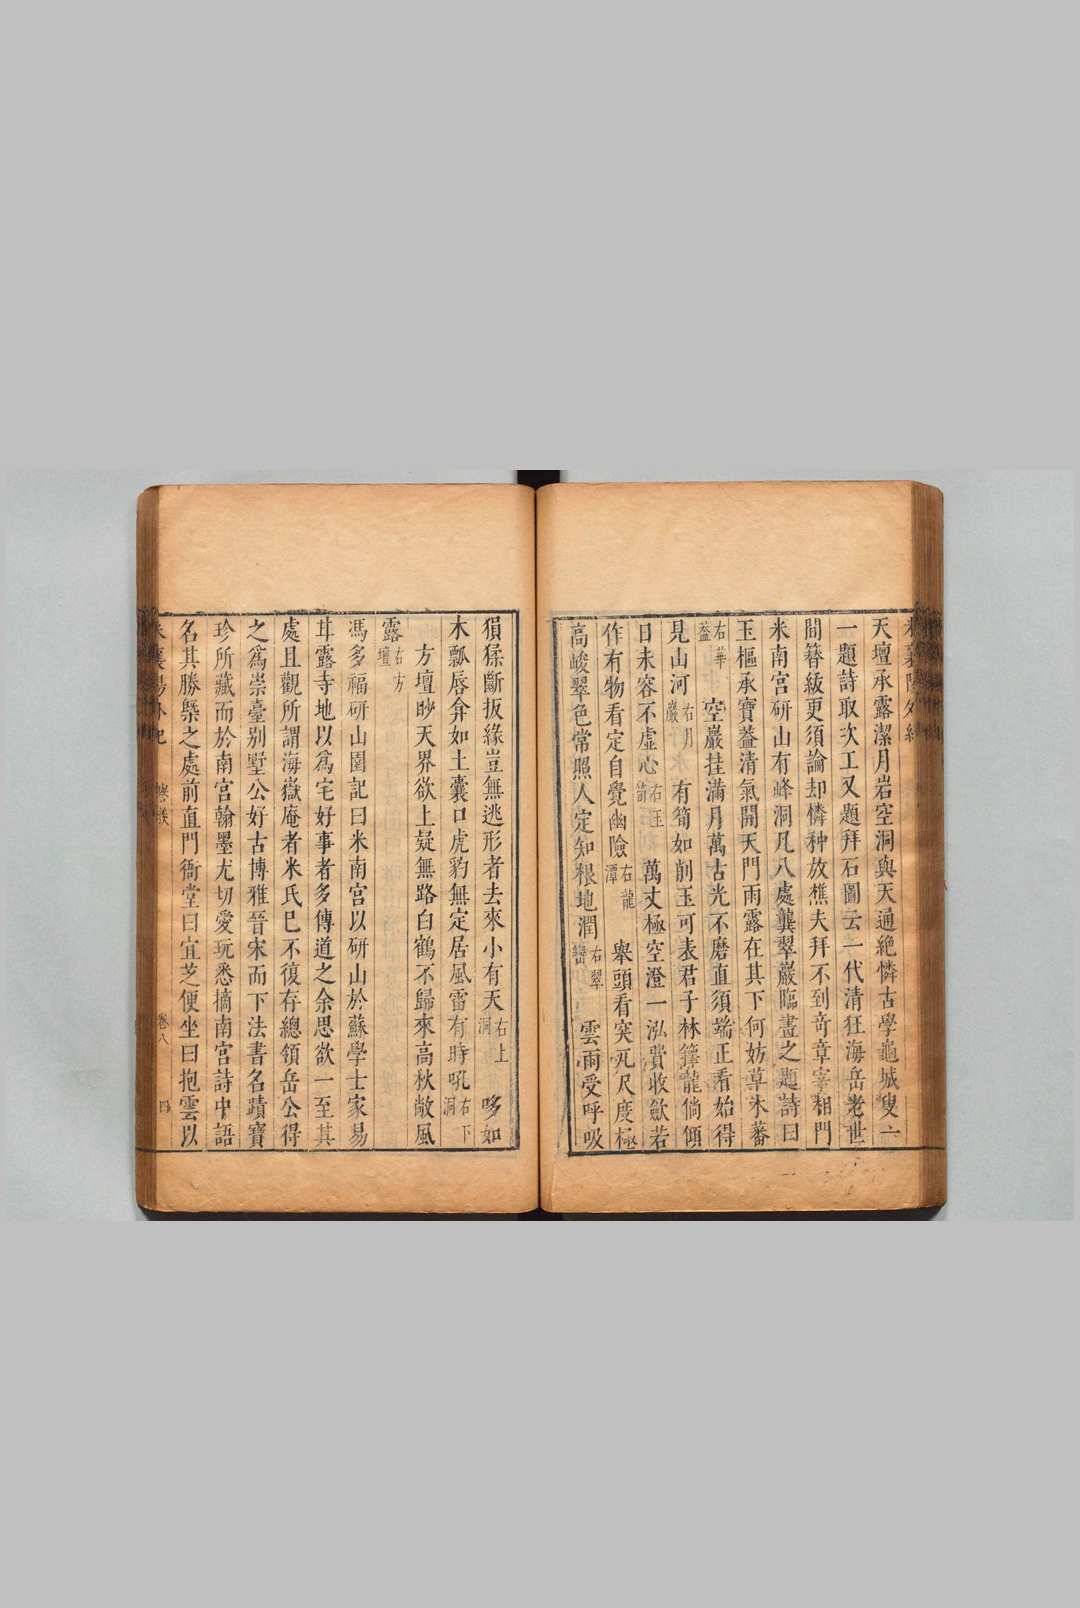 天壇承露潔月岩空洞與天通絶憐古學龜城叟一
一題詩取次工又題拜石圖云一代清狂海岳老世
間簪紱更須論却憐种放樵夫拜不到竒章宰相門
米南宮研山有峰洞凡八處龔翠巖臨畫之題詩曰
玉樞承寶葢清氣開天門雨露在其下何妨草木蕃
右華葢　空巖挂滿月萬古光不磨直須端正看始得
見山河右月巖　有筍如削玉可表君子林籜龍倘傾
日未容不虛心右玉筍　萬丈極空澄一泓費收歛若
作有物看定自覺幽險右龍潭　舉頭看突兀尺度極
高峻翠色常照人定知根地潤右翠巒　雲雨受呼吸
猖猱斷扳緣豈無逃形者去來小有天右上洞　哆如
木瓢唇弇如土囊口虎豹無定居風雷有時吼右下洞
方壇眇天界欲上疑無路白鶴不歸來高秋敞風
露右方壇
馮多福研山園記曰米南宮以研山於蘇學士家易
甘露寺地以爲宅好事者多傳道之余思欲一至其
處且觀所謂海嶽庵者米氏已不復存總領岳公得
之爲崇臺别墅公好古博雅晉宋而下法書名蹟寶
珍所藏而於南宮翰墨尤切愛玩悉摘南宮詩中語
名其勝槩之處前直門衙堂曰宜芝便坐曰抱雲以
米襄陽外紀　卷八　四